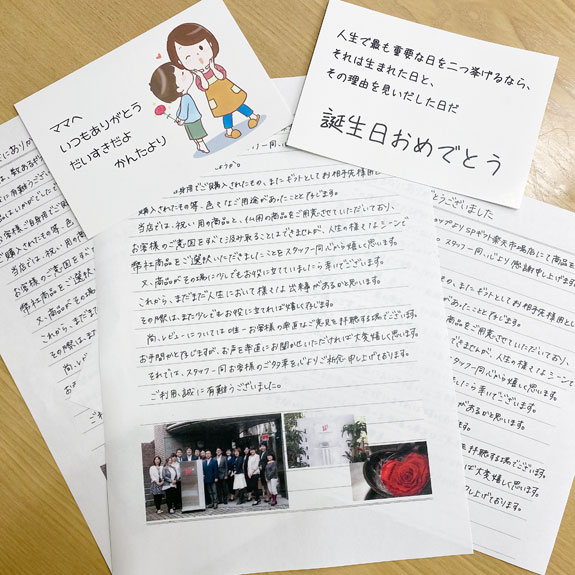 ママへ
いつもありがとう
だいすきだよ
かんたより
人生で最も重要な日を二つ挙げるなら、
それは生まれた日と、
その理由を見いだした日だ
誕生日おめでとう
ご自身用でご購入されたもの、またギフトとしてお相手先様田し
購入されたもの等、色々なご用途があったことと存じます。
当店では、祝い用の商品と、仏用の商品をご用意させていただいており、
お客様のご意図をすべて汲み取ることはできませんが、人生の様々なシーンで
弊社商品をご選択いただきましたことをスタッフ一同心から嬉しく思います。
又、商品がその場に少しでもお役に立てていましたら幸いでございます。
これから、まだまだ人生において様々な出来事があるかと思います。
その際は、また少しでもお役に立てれば嬉しく存じます。
尚、レビューについては唯一お客様の率直なご意見を拝聴する場でございます。
お手間かと存じますが、お声を率直にお聞かせいただければ大変嬉しく思います。
それでは、スタッフ一同お客様のご多幸を心よりご祈念申し上げております。
ご利用、誠に有難うございました。
うございました
ップよりSPギフト楽天市場店にて商品を
スタッフ一同、心より感謝申し上げます。
またギフトとしてお相手先様田し
があったことと存じます。
商品をご用意させていただいており、
できませんが、人生の様々なシーンで
スタッフ一同心から嬉しく思います。
ましたら幸いでございます。
があるかと思います。
存じます。
を拝聴する場でございます。
ば大変嬉しく思います。
し上げております。